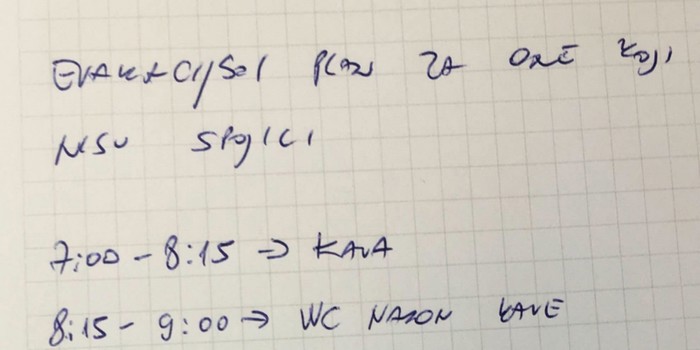 EVAKACIJSKI PLAN ZA ONE KOJI
NISU SPOJICI
7:00 - 8:15 → KAVA
8:15 - 9:00 → WC NAKON KAVE